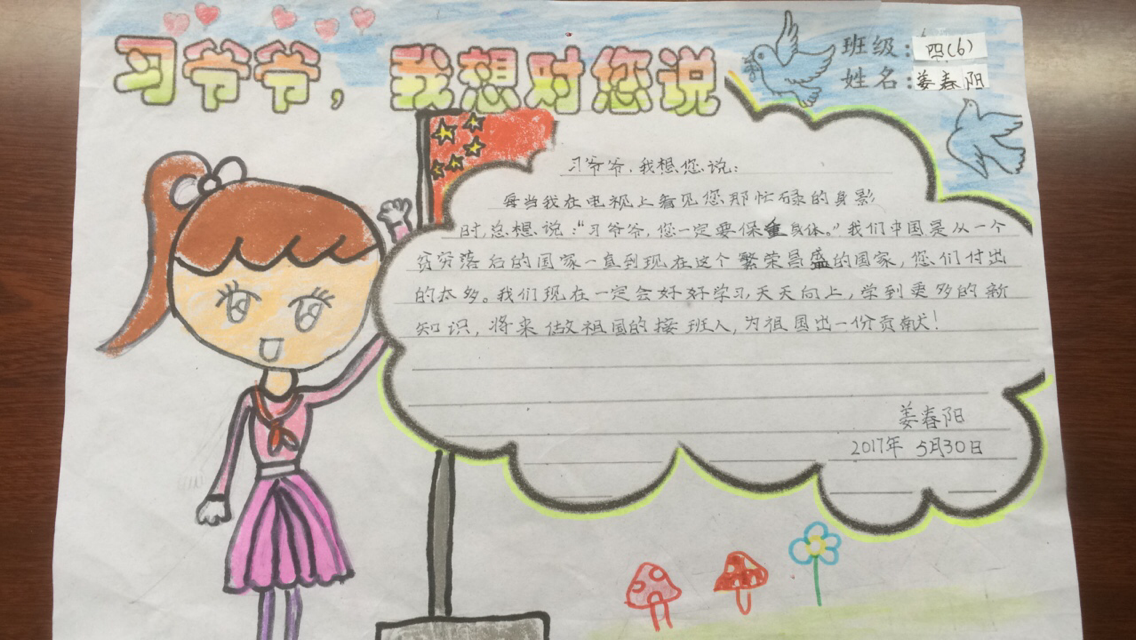 习爷爷，我想对您说
班级：四(6)
姓名：姜春阳
习爷爷，我想您说：
每当我在电视上看见您那忙碌的身影
时总想说：“习爷爷，您一定要保重身体。”我们中国是从一个
贫穷落后的国家一直到现在这个繁荣昌盛的国家，您们付出
的太多。我们现在一定会好好学习，天天向上，学到更多的新
知识，将来做祖国的接班人，为祖国出一份贡献！
姜春阳
2017年 5月30日